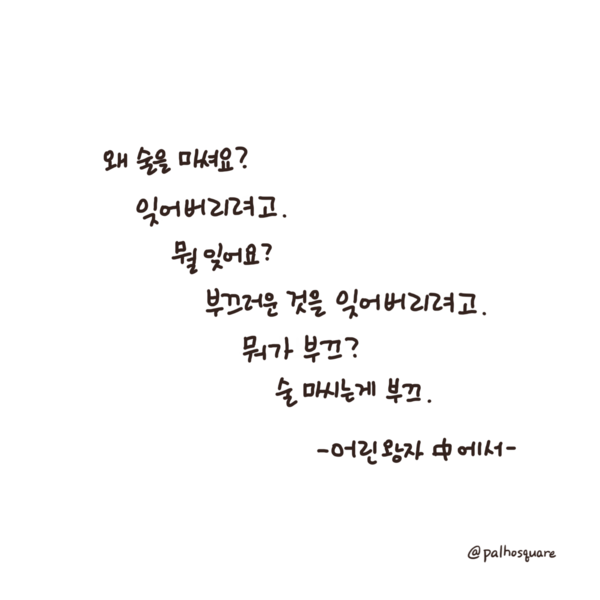 왜 술을 마셔요?
잊어버리려고.
뭘 잊어요?
부끄러운 것을 잊어버리려고.
뭐가 부끄?
술 마시는게 부끄.
-어린왕자 中에서-
@palhosquare